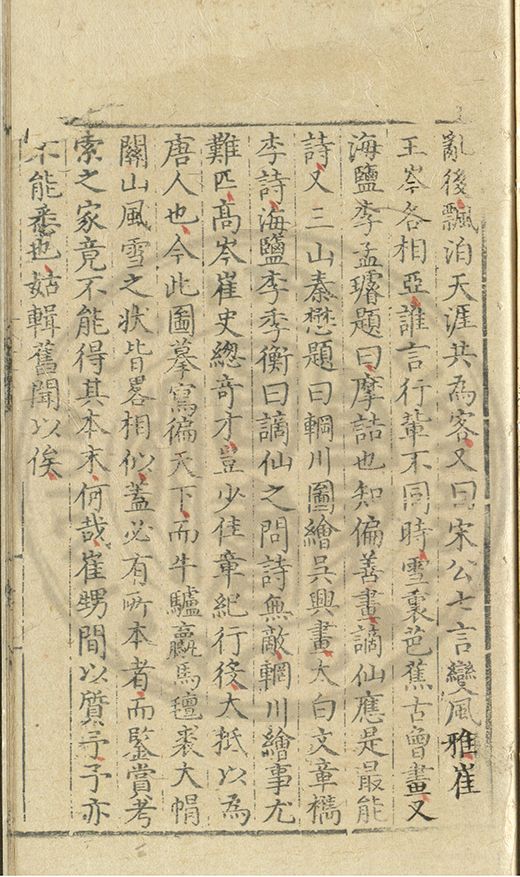 亂後飄泊天涯共為客又曰宋公七言變風雅崔
王岑各相亞誰言行輩不同時雪裏芭蕉古曾畫又
海鹽李孟璿題曰摩詰也知偏善畫謫仙應是最能
詩又三山秦懋題曰輞川圖繪吳興畫太白文章檇
李詩海鹽李季衡曰謫仙之問詩無敵輞川繪事尤
難匹高岑崔史總奇才豈少佳章紀行役大抵以為
唐人也今此圖摹寫徧天下而牛驢驘馬氊裘大帽
關山風雪之狀皆畧相似蓋必有所本者而鑒賞考
索之家竟不能得其本末何哉崔甥間以質予予亦
不能悉也姑輯舊聞以俟